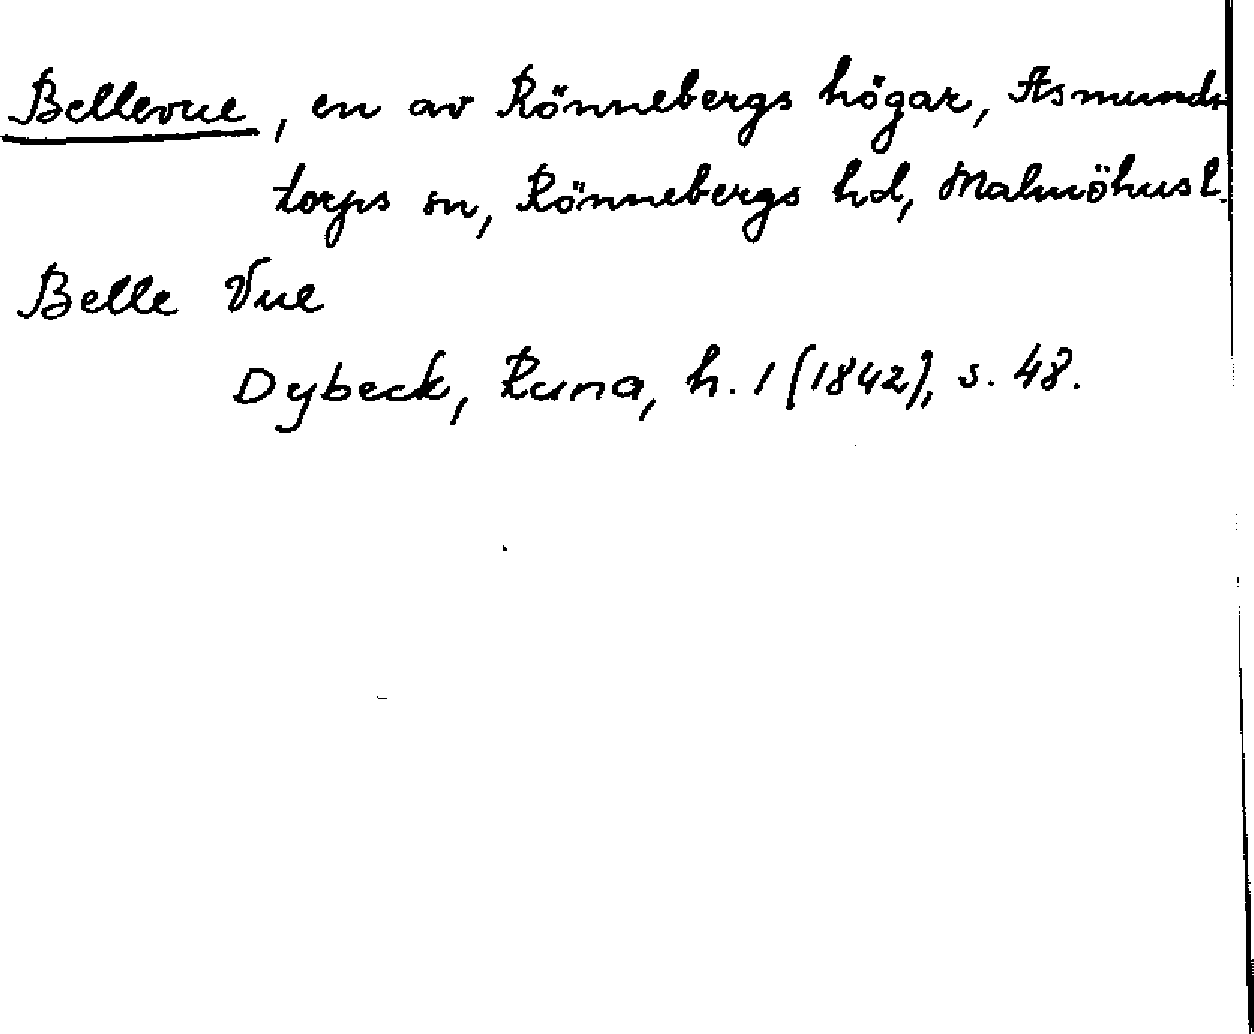 Bellevue, en av Rönnebergs högar, Asmunds
torps sn, Rönnebergs hd, Malmöhus l.
Belle Vue
Dybeck, Runa, h. 1 (1842), s. 48.